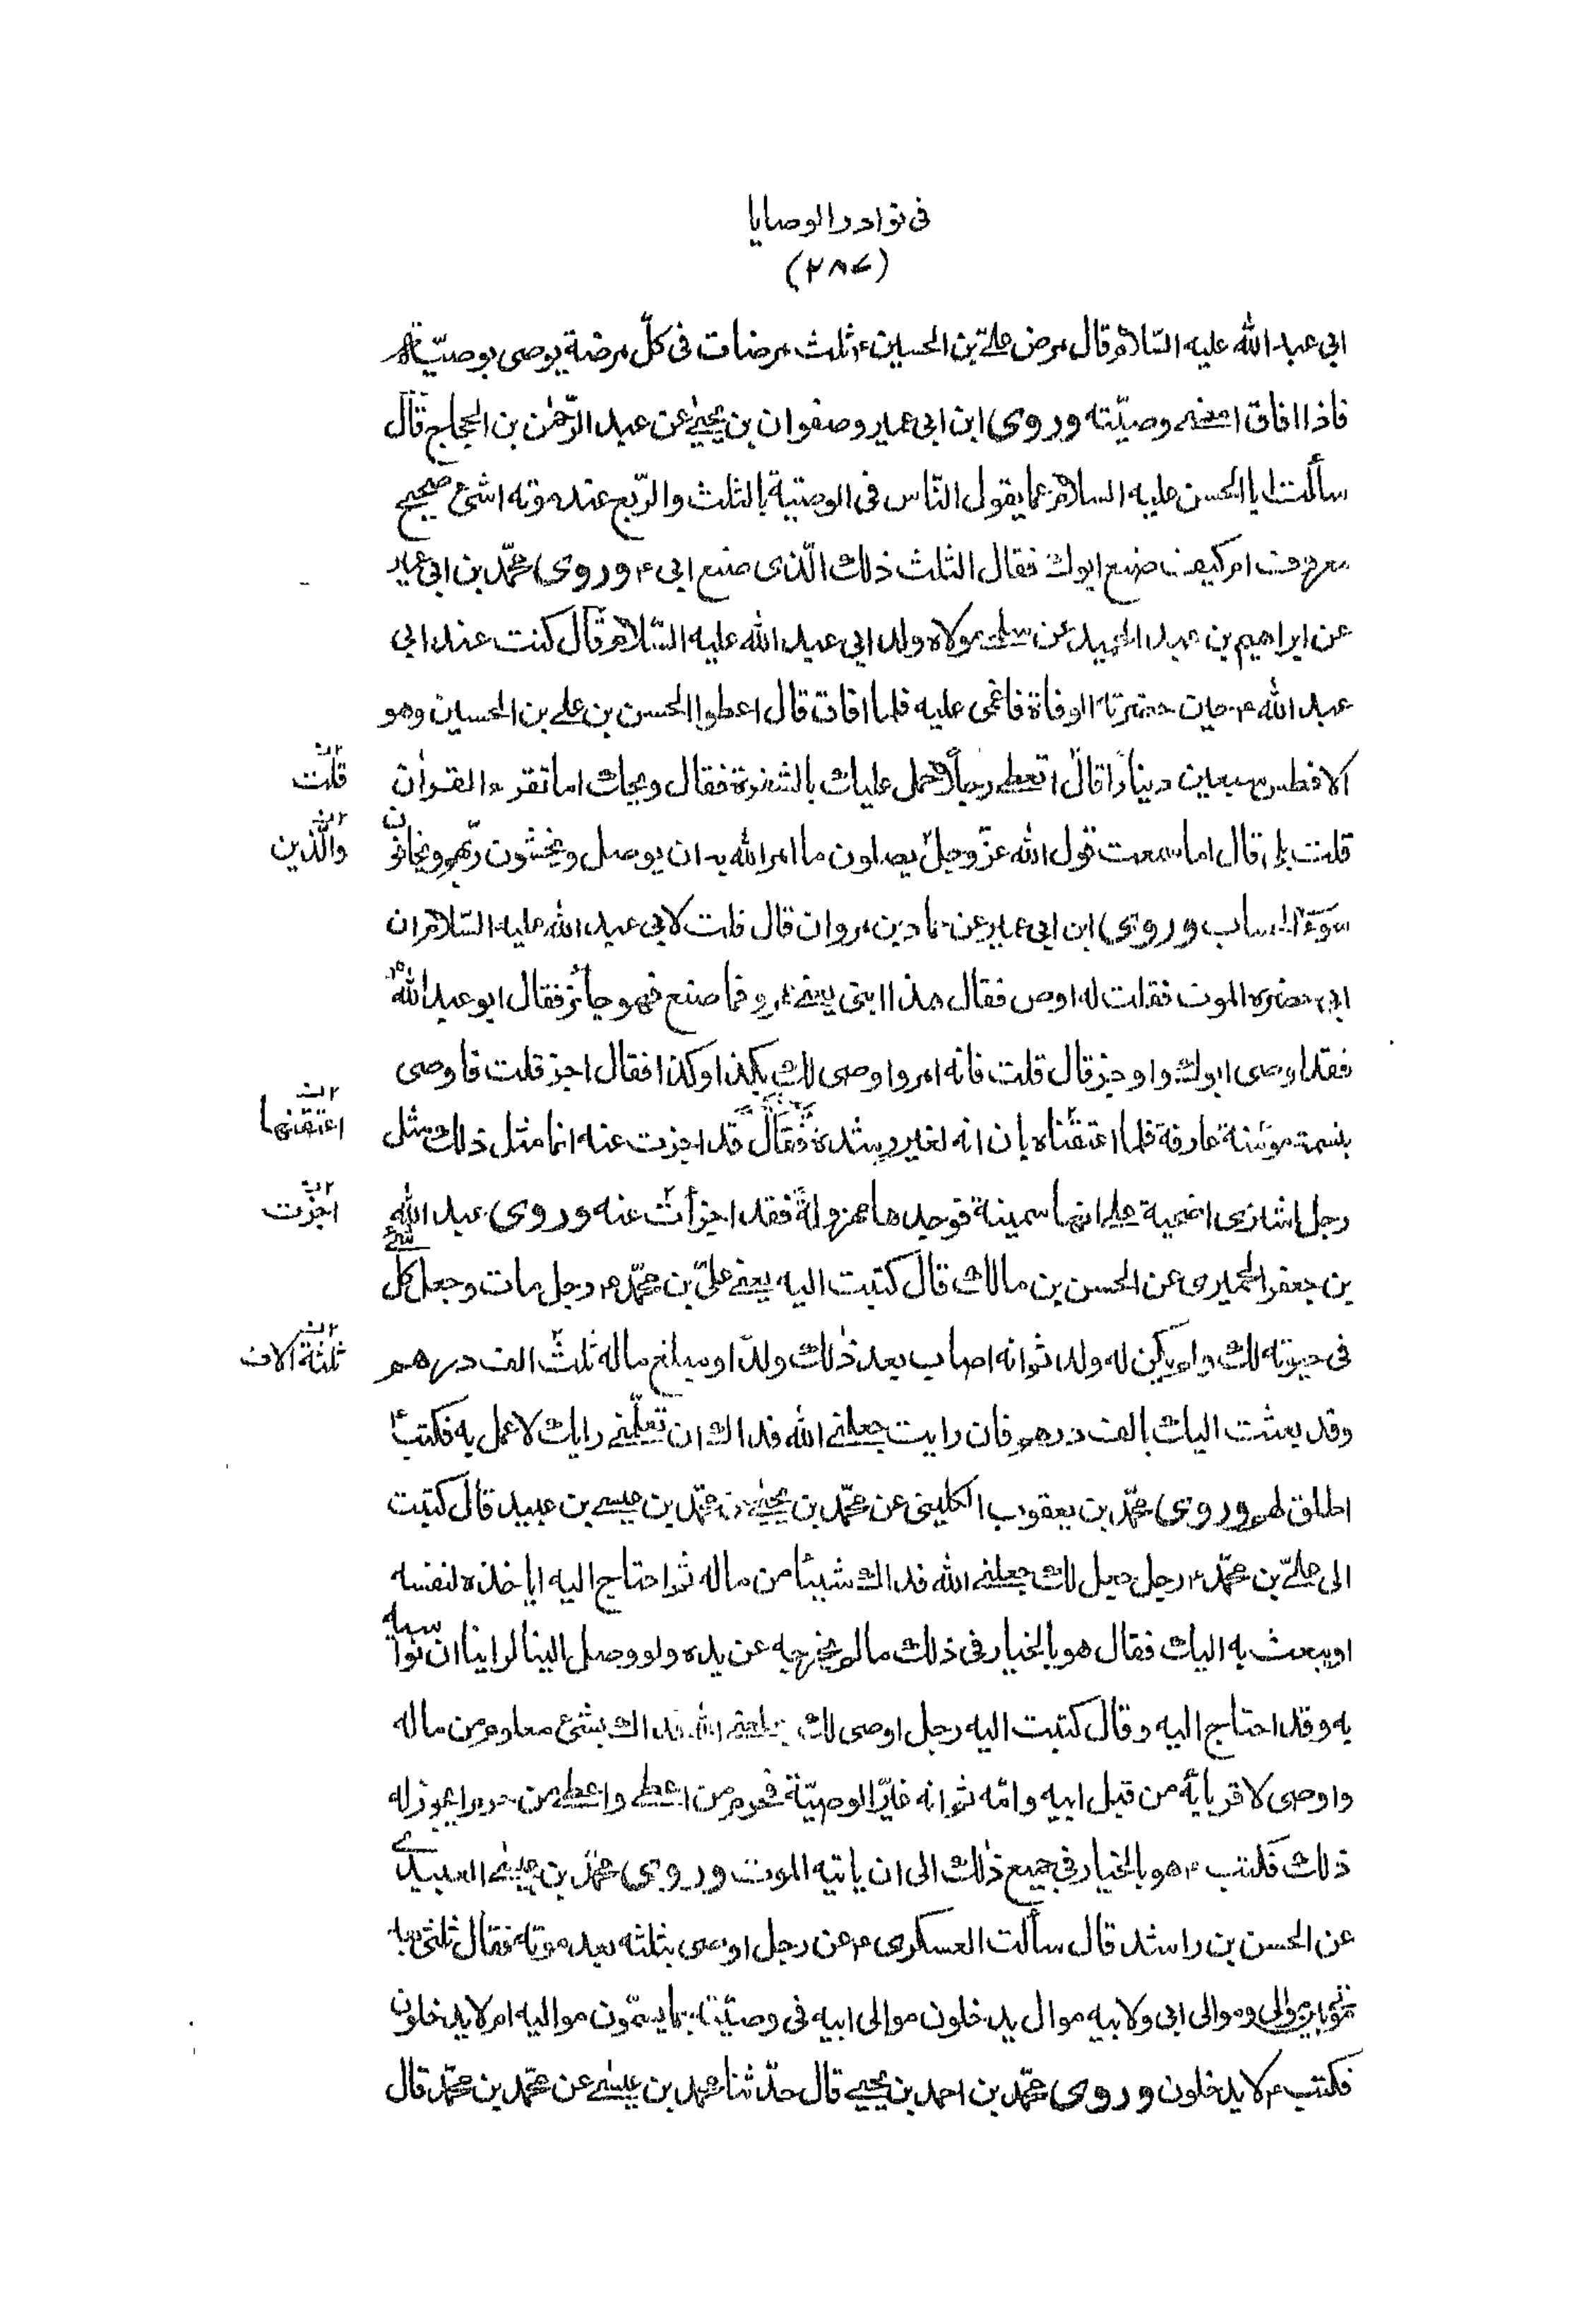 فى نوادر الوصايا
(٢٨٧)
ابى عبد الله عليه السّلام قال مرض علىّ بن الحسين ع ثلث مرضات فى كلّ مرضة يوصى بوصيّة
فاذا افاق امضى وصيّته وروى ابن ابى عمير وصفوان بن يحيى عن عبد الرّحمن بن الحجاج قال
سألت ابا الحسن عليه السلام عما يقول النّاس فى الوصيّة بالثلث والرّبع عند موته اشئ صحيح
معروف ام كيف صنع ابوك فقال الثلث ذلك الّذى صنع ابى ع وروى محمّد بن ابى عمير
عن ابراهيم بن عبد الحميد عن سلمى مولاة ولد ابى عبد الله عليه السّلام قال كنت عند ابى
عبد الله ع حين حضرته الوفاة فاغمى عليه فلما افاق قال اعطوا الحسن بن على بن الحسين وهو
الافطس سبعين دينارًا قال اتعطى رجلًا حمل عليك بالشفرة فقال ويحك اما تقرء القرآن
قلت
قلت بلى قال اما سمعت قول الله عزّ وجلّ يصلون ما امر الله به ان يوصل ويخشون ربّهم ويخافون
والّذين
سوء الحساب وروى ابن ابى عمير عن مروان قال قلت لابى عبد الله عليه السّلام ان
ابى حضره الموت فقلت له اوص فقال هذا ابنى يعنى عمر وفما صنع فهو جائز فقال ابو عبد الله ع
فقد اوصى ابوك واوجز قال قلت فانه امر واوصى لك بكذا وكذا فقال اجز قلت فاوصى
بنسمة مؤمنة عارفة فلما اعتقناه بان انه لغير رشدة فقال قد اجزت عنه انما مثل ذلك مثل
اعتقنها
رجل اشترى اضحية على انها سمينة فوجدها مهزولة فقد اجزأت عنه وروى عبد الله
اجزت
بن جعفر الحميرى عن الحسن بن مالك قال كتبت اليه يعنى علىّ بن محمّد ع رجل مات وجعل كل شئ
فى حيوته لك ولم يكن له ولد ثم انه اصاب بعد ذلك ولدًا ومبلغ ماله ثلث الف درهم
ثلثة الاف
وقد بعثت اليك بالف درهم فان رايت جعلنى الله فداك ان تعلّمنى رايك لاعمل به فكتب ع
اطلق لهم وروى محمّد بن يعقوب الكلينى عن محمّد بن يحيى عن محمّد بن عيسى بن عبيد قال كتبت
الى علىّ بن محمّد ع رجل جعل لك جعلنى الله فداك شيئا من ماله ثم احتاج اليه اياخذه لنفسه
او يبعث به اليك فقال هو بالخيار فى ذلك ما لم يخرجه عن يده ولو وصل الينا لراينا ان نواسيه
به وقد احتاج اليه وقال كتبت اليه رجل اوصى لك جعلنى الله فداك بشئ معلوم من ماله
واوصى لاقربائه من قبل ابيه وامّه ثم انه غيّر الوصيّة فحرم من اعطى واعطى من حرم ايجوز له
ذلك فكتب ع هو بالخيار فى جميع ذلك الى ان ياتيه الموت وروى محمّد بن عيسى العبيدى
عن الحسن بن راشد قال سألت العسكرى ع عن رجل اوصى بثلثه بعد موته فقال ثلثى بعد
موتى بين موالى وموالى ابى ولابيه موال يدخلون موالى ابيه فى وصيّته بما يسمّون مواليه ام لا يدخلون
فكتب ع لا يدخلون وروى محمّد بن احمد بن يحيى قال حدّثنا محمد بن عيسى عن محمّد بن محمّد قال